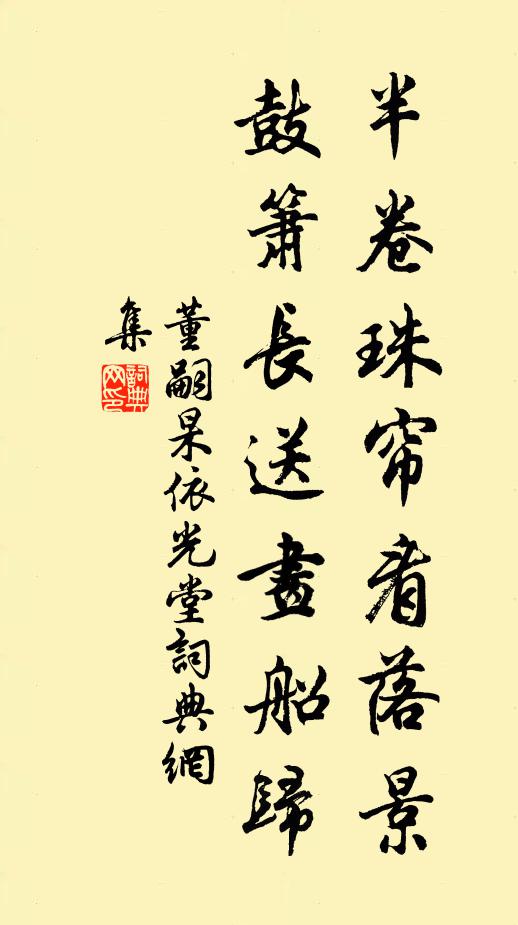 半卷珠帘看落景
鼓箫長送畫船歸
董嗣杲依光堂詞典網
集
詞典
网印